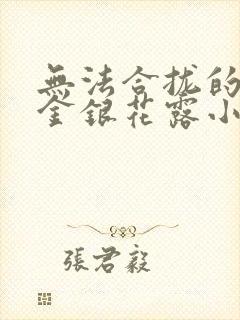 無法合拢的
金銀花露小
張君毅